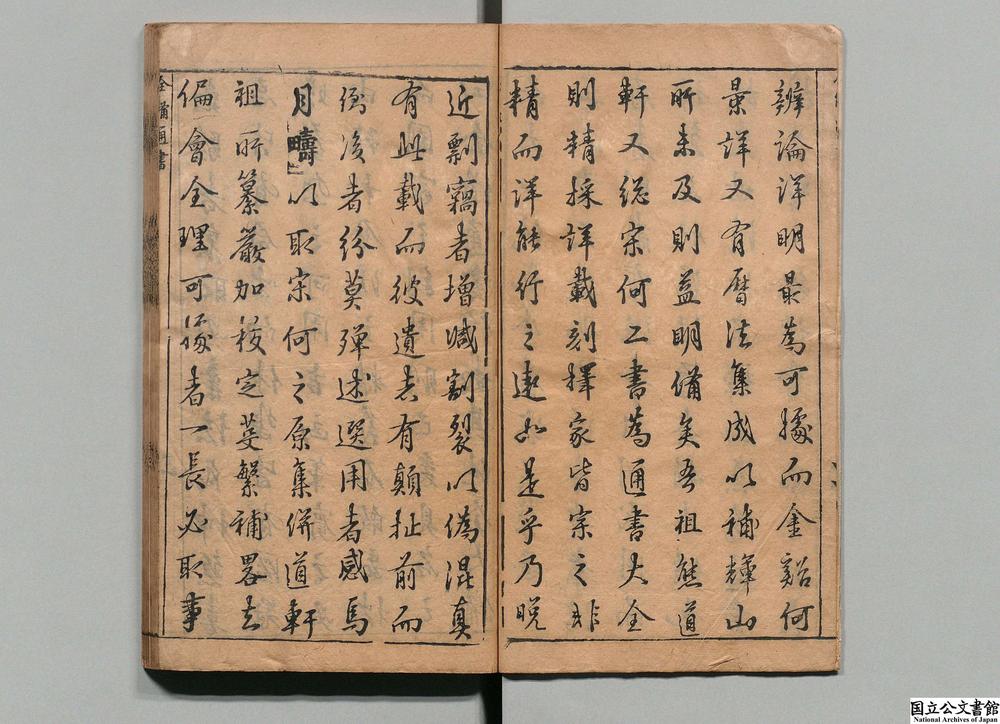 辨論詳明最為可據而金谿何
景祥又有曆法集成以補輝山
所未及則益明備矣吾祖熊道
軒又總宋何二書為通書大全
則精採詳載刻擇家皆宗之非
精而詳能行之遠如是乎乃晚
近剽竊者增減割裂以偽混真
有此載而彼遺者有顛扯前而
後者紛莫殫述選用者惑焉
月疇以取宋何之原集併道軒
祖所纂嚴加校定芟繁補畧去
偏會全理可依者一長必取事
全備通書
国立公文書館
National Archives of Japan